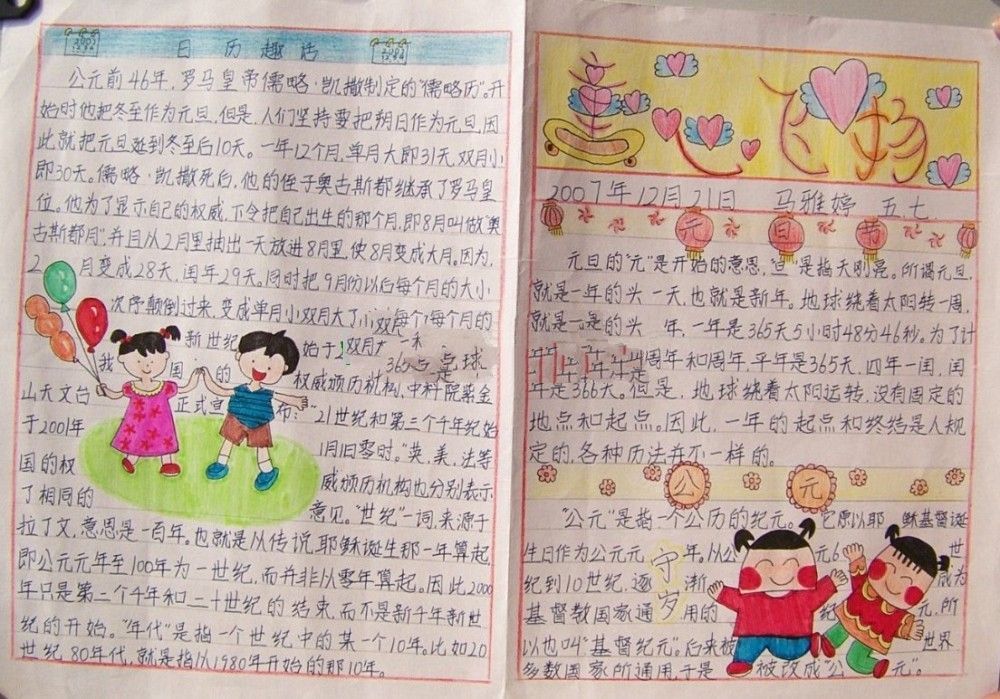 日历趣话
公元前46年,罗马皇帝儒略·凯撒制定的"儒略历"。开
始时他把冬至作为元旦,但是,人们坚持要把朔日作为元旦,因
此就把元旦延到冬至后10天。一年12个月,单月大即31天,双月小
即30天。儒略·凯撒死后,他的侄子奥古斯都继承了罗马皇
位。他为了显示自己的权威,下令把自己出生的那个月,即8月叫做"奥
古斯都月",并且从2月里抽出一天放进8月里,使8月变成大月。因为,
2月变成28天,闰年29天。同时把9月份以后每个月的大小
次序颠倒过来,变成单月小双月大了
新世纪始于2
我国的权威颁历机构、中科院紫金
山天文台正式宣布:"21世纪和第三个千年纪始
于2001年1月1日零时。"英,美,法等
国的权威颁历机构也分别表示
了相同的意见。"世纪"一词,来源于
拉丁文,意思是一百年。也就是从传说,耶稣诞生那一年算起,
即公元元年至100年为一世纪,而并非从零年算起。因此2000
年只是第二个千年和二十世纪的结束,而不是新千年新世
纪的开始。"年代"是指一个世纪中的某一个10年。比如20
世纪80年代,就是指从1980年开始的那10年。
心飞扬
2007年12月21日 马雅婷 五.七.
元旦节
元旦的"元"是开始的意思,"旦"是指天刚亮。所谓元旦,
就是一年的头一天,也就是新年。地球绕着太阳转一周,
就是一是的头 年,一年是365天5小时48分46秒。为了计
周年和周年,平年是365天,四年一闰,闰
年是366天。但是,地球绕着太阳运转,没有固定的
地点和起点。因此,一年的起点和终结是人规
定的,各种历法并不一样的。
公元
"公元"是指一个公历的纪元。它原以耶稣基督诞
生日作为公元元年。从公元6世
纪到10世纪,逐渐成为
基督教国家通用的纪元,所
以也叫"基督纪元"。后来被世界
多数国家所通用,于是被改成"公元"。
守岁